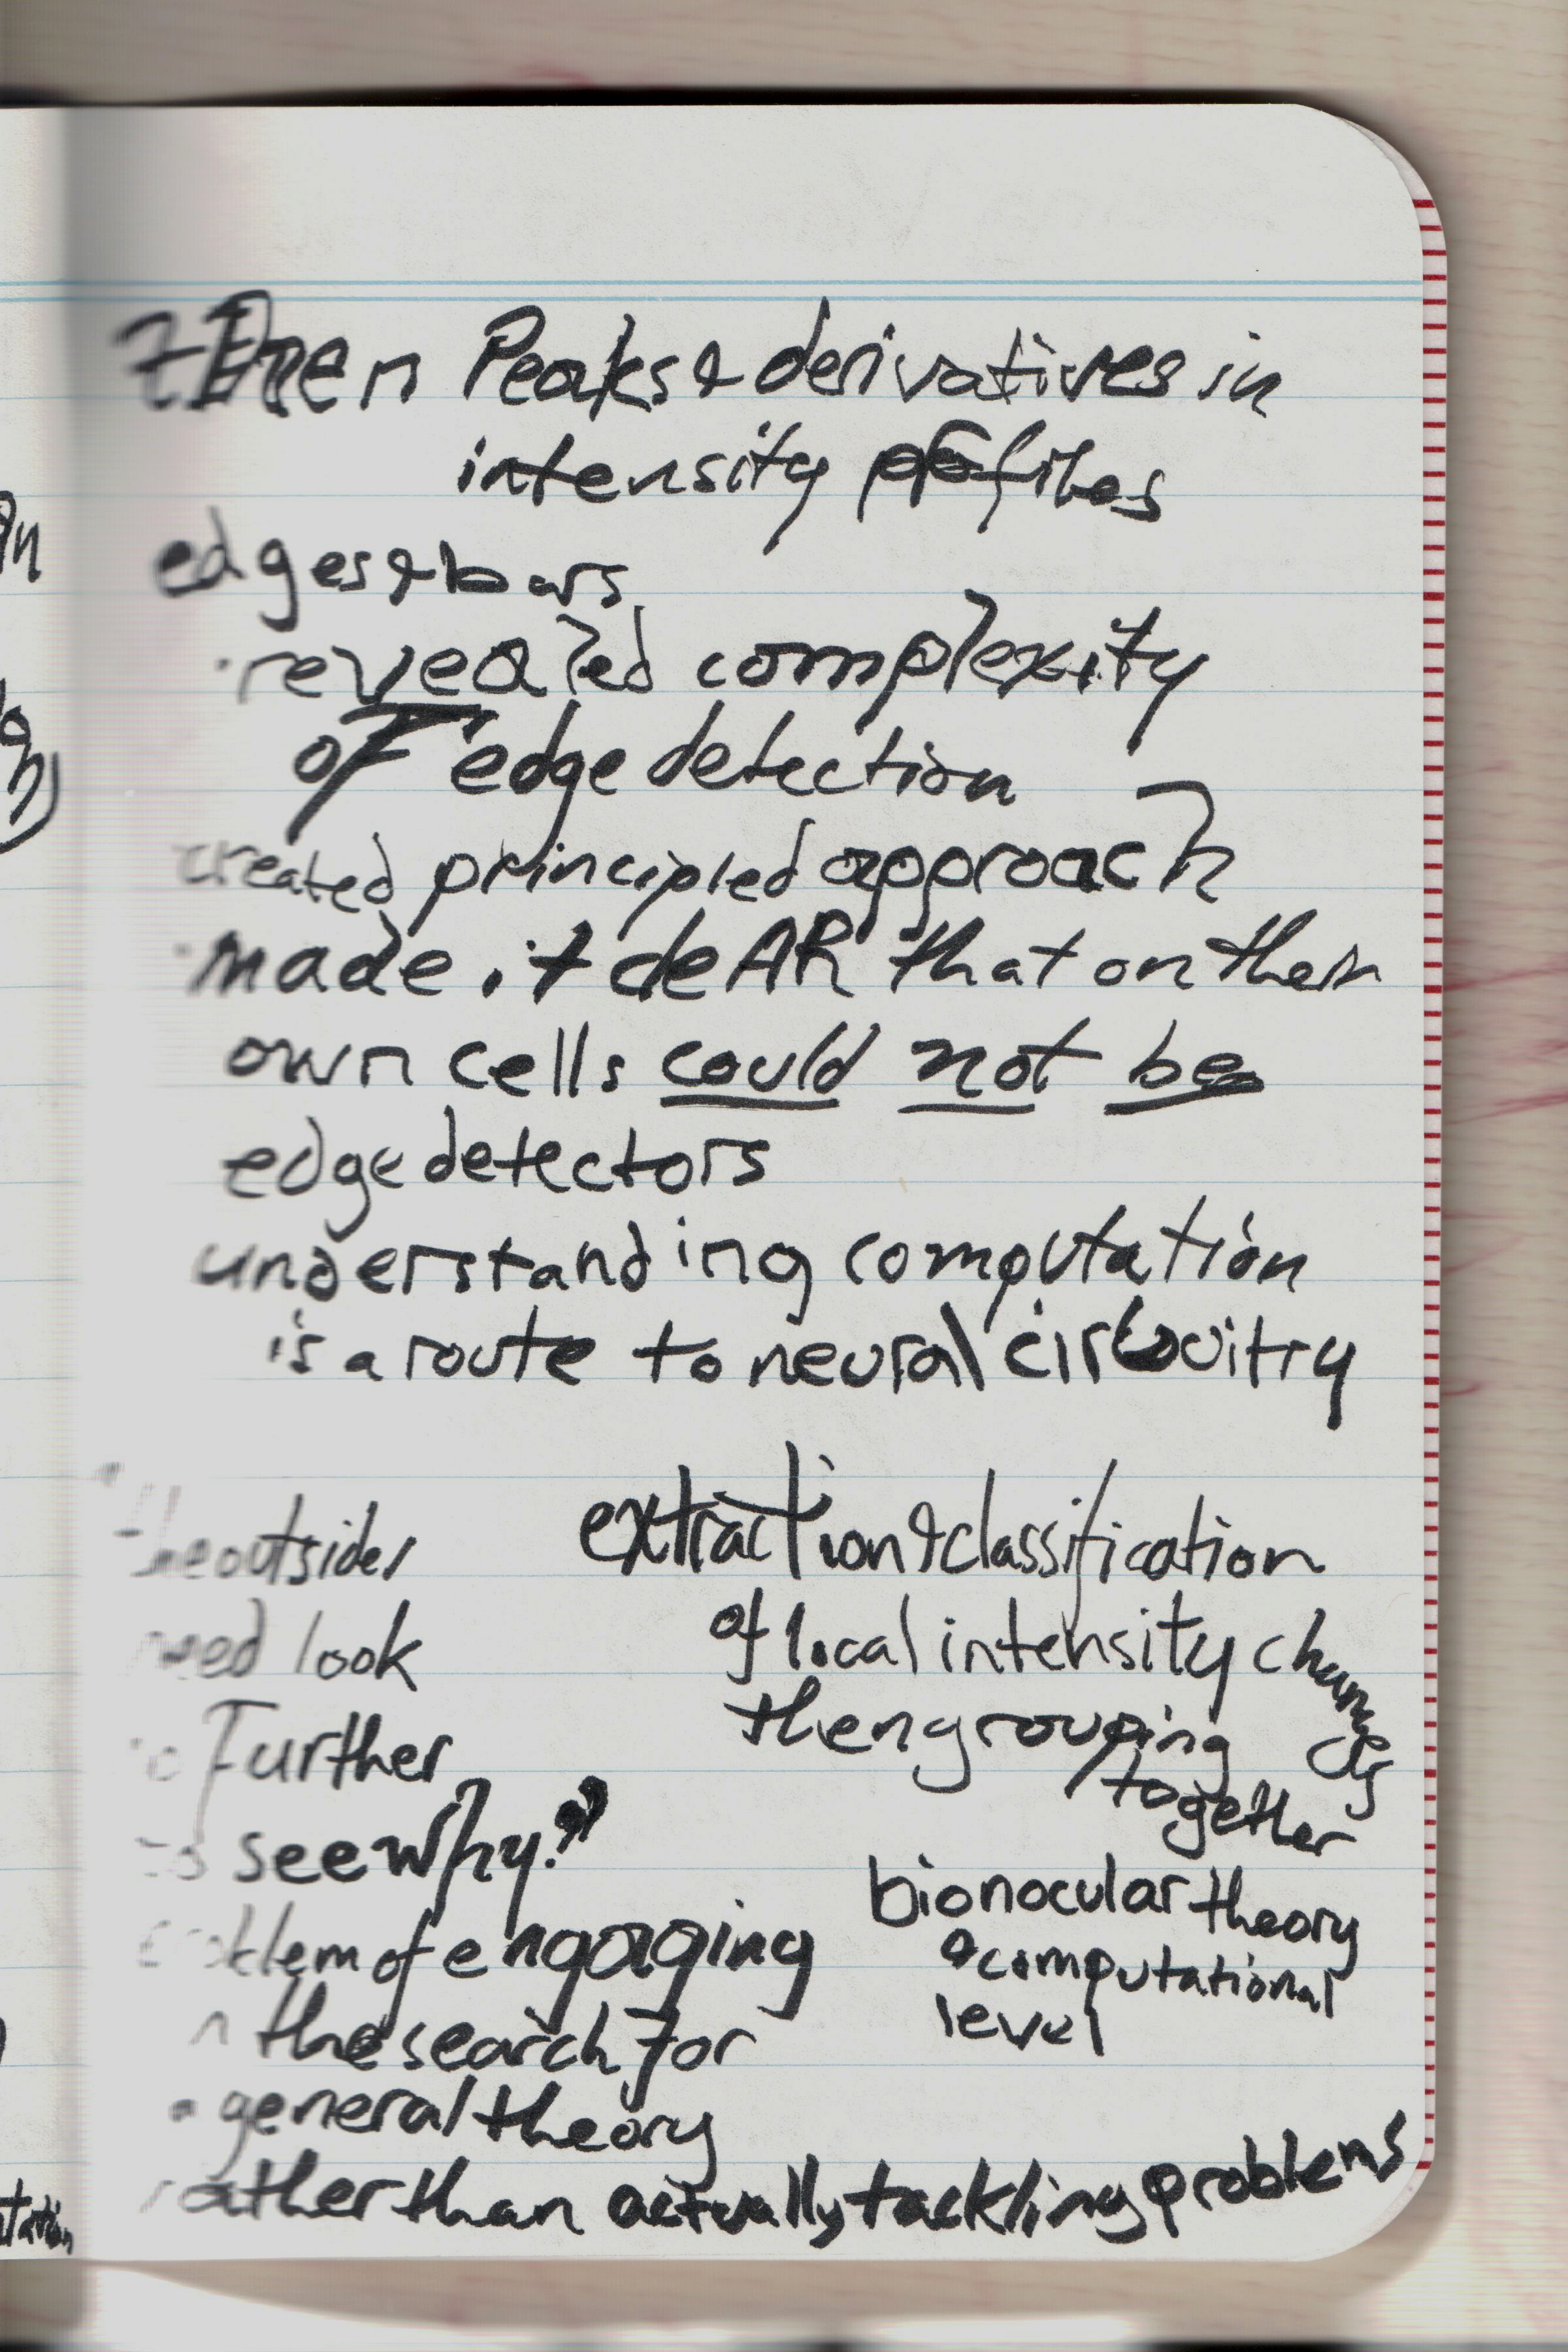 then Peaks & derivatives in
intensity profiles
edges & bars
· revealed complexity
of edge detection
created principled approach
· made it cleAR that on their
own cells could not be
edge detectors
understanding computation
is a route to neural circuitry
"the outsider
need look
no further
to see why?"
problem of engaging
in the search for
a general theory
rather than actually tackling problems
extraction & classification
of local intensity changes
then grouping
together
bionocular theory
computational
level